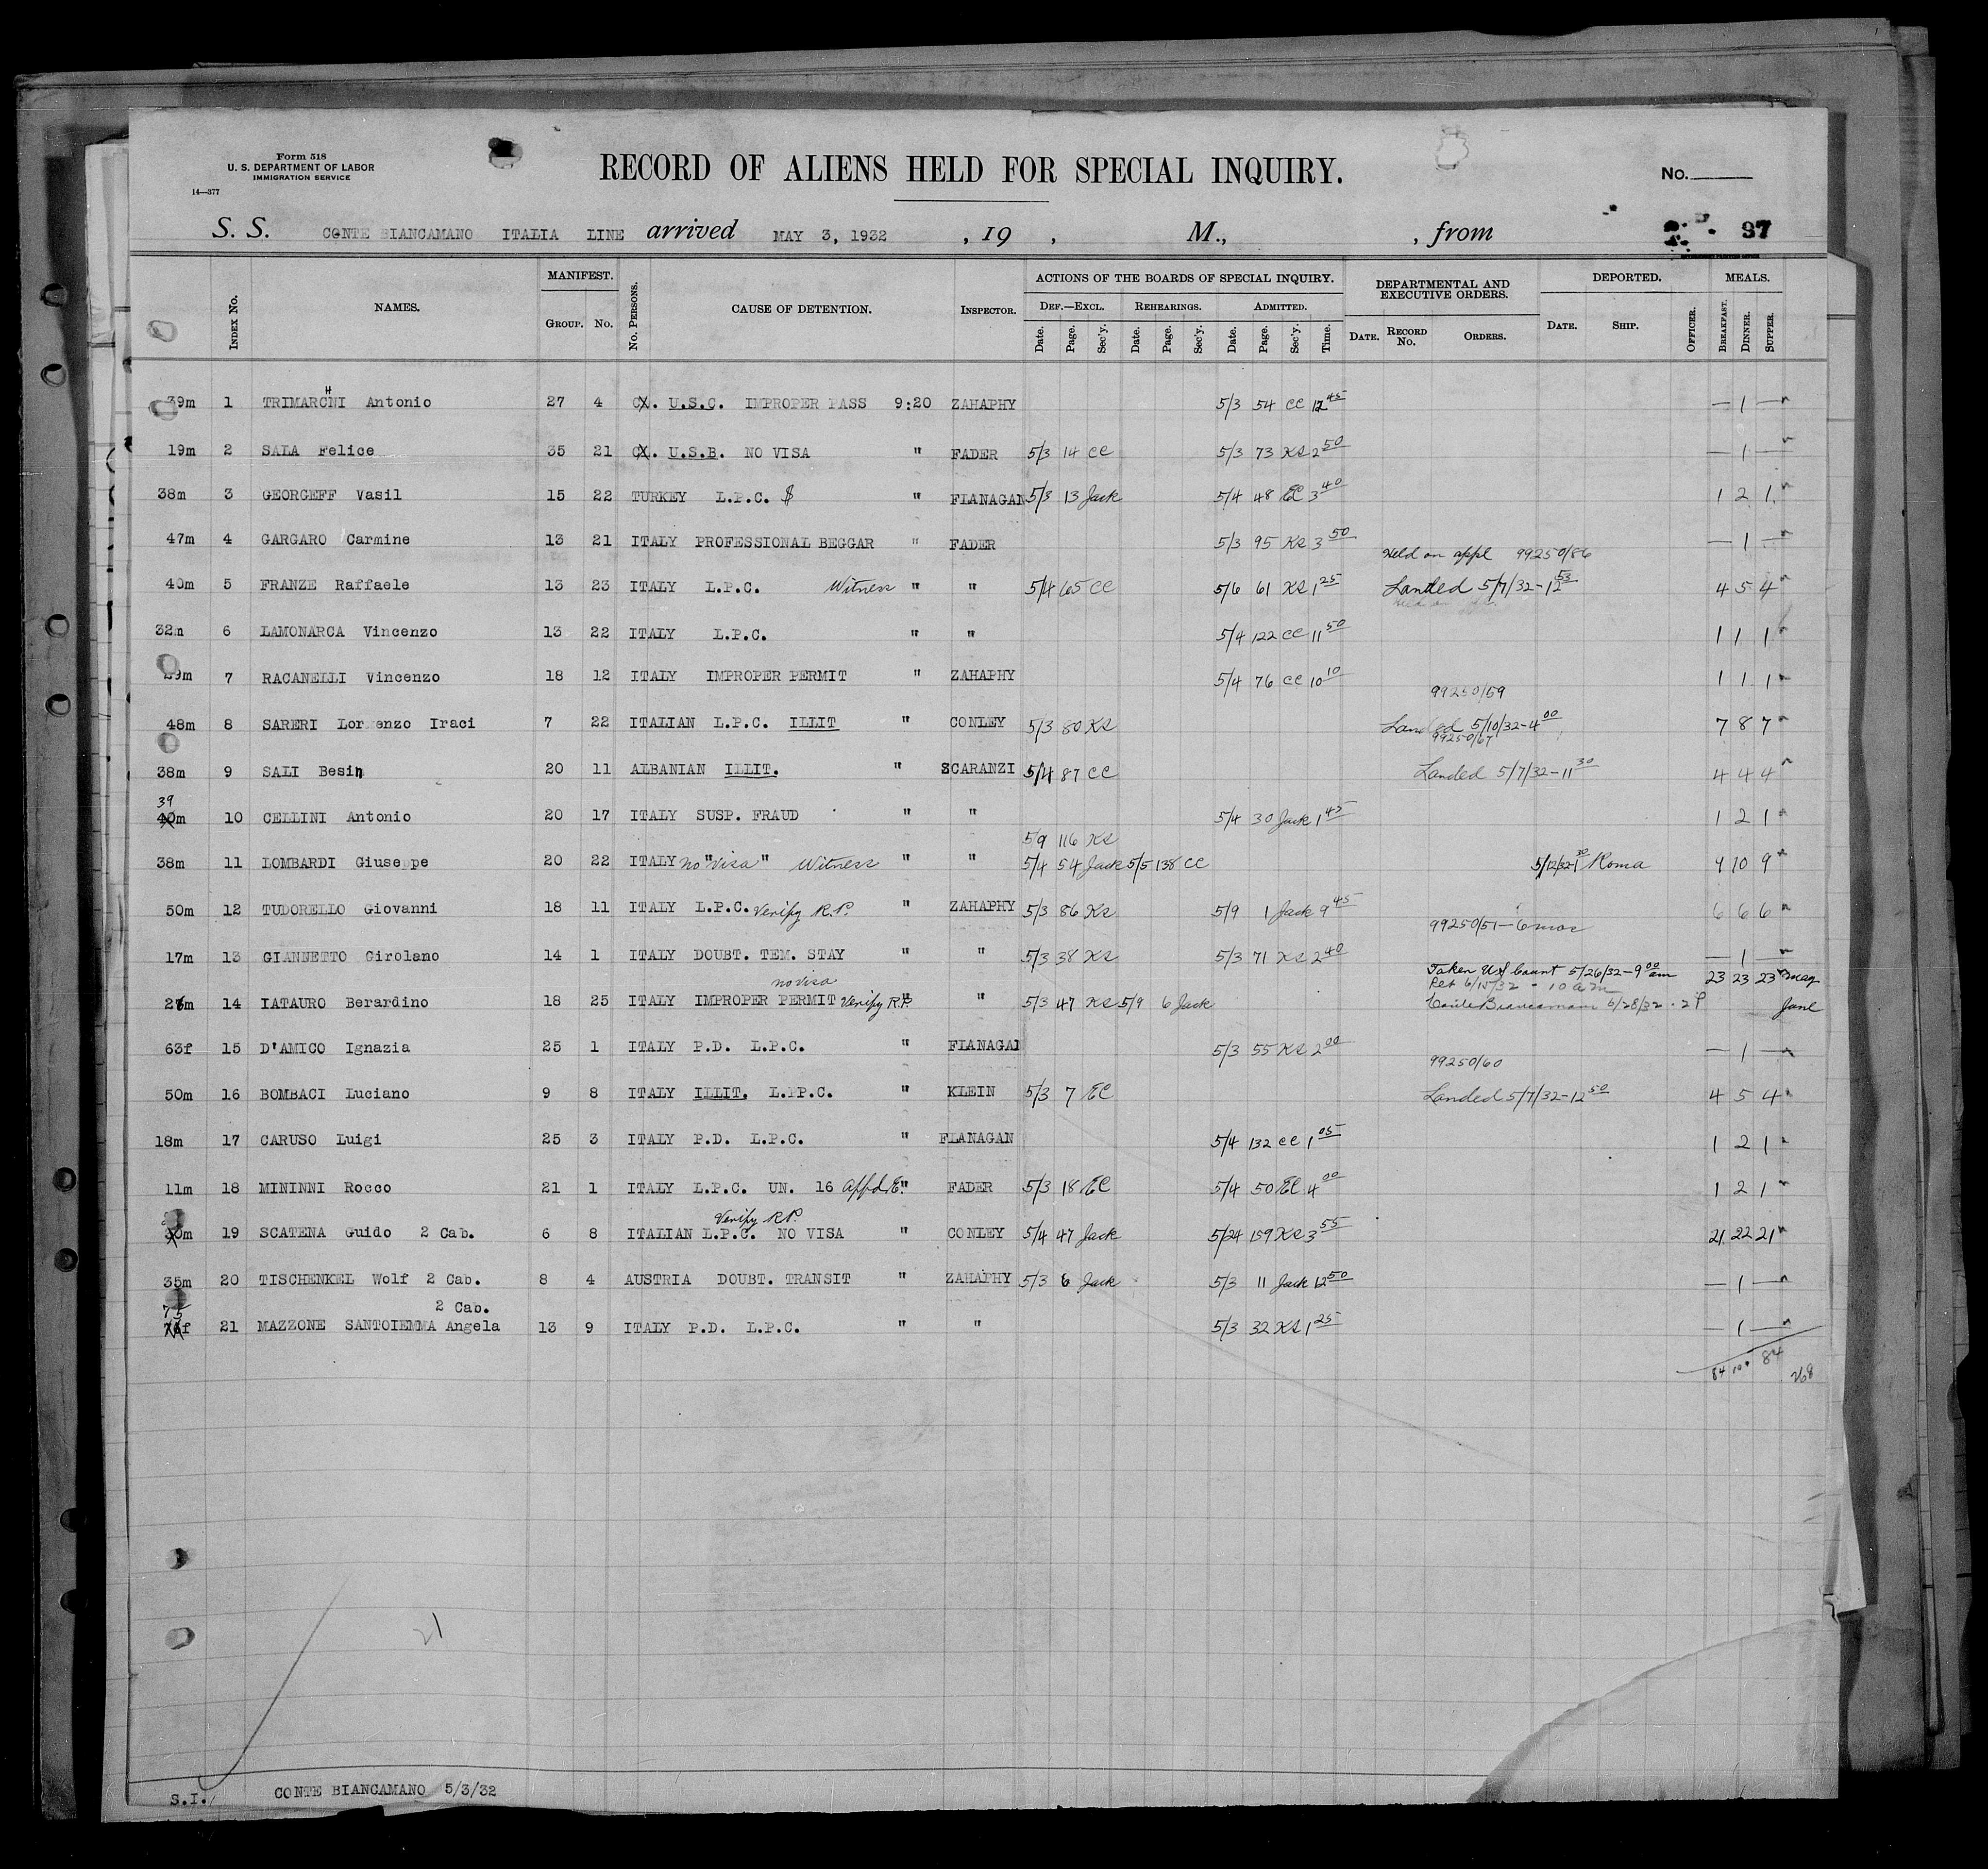 Form 518
U. S. DEPARTMENT OF LABOR
IMMIGRATION SERVICE
14—377
RECORD OF ALIENS HELD FOR SPECIAL INQUIRY.
No.
S. S. CONTE BIANCAMANO ITALIA LINE arrived MAY 3, 1932 , 19 , M., , from 37
Index No. NAMES. MANIFEST. Group. No. No. Persons. CAUSE OF DETENTION. Inspector. ACTIONS OF THE BOARDS OF SPECIAL INQUIRY. Def.—Excl. Date. Page. Sec'y. Rehearings. Date. Page. Sec'y. Admitted. Date. Page. Sec'y. Time. DEPARTMENTAL AND EXECUTIVE ORDERS. Date. Record No. Orders. DEPORTED. Date. Ship. Officer. MEALS. Breakfast. Dinner. Supper.
39m 1 TRIMARCHI Antonio 27 4 U.S.C. IMPROPER PASS 9:20 ZAHAPHY 5/3 54 CC 12 45 — 1 —
19m 2 SALA Felice 35 21 U.S.B. NO VISA " FADER 5/3 14 CC 5/3 73 KS 2 50 — 1 —
38m 3 GEORGEFF Vasil 15 22 TURKEY L.P.C. $ " FLANAGAN 5/3 13 Jack 5/4 48 EC 3 40 1 2 1
47m 4 GARGARO Carmine 13 21 ITALY PROFESSIONAL BEGGAR " FADER 5/3 95 KS 3 50 — 1 —
Held on appl 99250/86
40m 5 FRANZE Raffaele 13 23 ITALY L.P.C. Witness " " 5/4 65 CC 5/6 61 KS 1 25 Landed 5/7/32-1 4 5 4
32m 6 LAMONARCA Vincenzo 13 22 ITALY L.P.C. " " 5/4 122 CC 11 50 1 1 1
9m 7 RACANELLI Vincenzo 18 12 ITALY IMPROPER PERMIT " ZAHAPHY 5/4 76 CC 10 10 1 1 1
99250/59
48m 8 SARERI Lorenzo Iraci 7 22 ITALIAN L.P.C. ILLIT " CONLEY 5/3 80 KS Landed 5/10/32-4 00 7 8 7
99250/67
38m 9 SALI Besim 20 11 ALBANIAN ILLIT. " SCARANZI 5/4 87 CC Landed 5/7/32-11 30 4 4 4
39
40m 10 CELLINI Antonio 20 17 ITALY SUSP. FRAUD " " 5/4 30 Jack 1 45 1 2 1
5/9 116 KS
38m 11 LOMBARDI Giuseppe 20 22 ITALY no "visa" Witness " " 5/4 54 Jack 5/5 138 CC 5/12/32-1 30 Roma 9 10 9
50m 12 TUDORELLO Giovanni 18 11 ITALY L.P.C. Verify R.P. " ZAHAPHY 5/3 86 KS 5/9 1 Jack 9 45 6 6 6
99250/51-6 mos
17m 13 GIANNETTO Girolano 14 1 ITALY DOUBT. TEM. STAY " " 5/3 38 KS 5/3 71 KS 2 40 — 1 —
no visa Taken US Court 5/26/32-9 00 am 23 23 23
Ret 6/15/32 - 10 am
14 IATAURO Berardino 18 25 ITALY IMPROPER PERMIT Verify R.P. " " 5/3 47 KS 5/9 6 Jack Conte Biancamano 6/28/32 - 2 P June
63f 15 D'AMICO Ignazia 25 1 ITALY P.D. L.P.C. " FLANAGAN 5/3 55 KS 2 00 — 1 —
99250/60
50m 16 BOMBACI Luciano 9 8 ITALY ILLIT. L.PP.C. " KLEIN 5/3 7 EC Landed 5/7/32-12 50 4 5 4
18m 17 CARUSO Luigi 25 3 ITALY P.D. L.P.C. " FLANAGAN 5/4 132 CC 1 05 1 2 1
11m 18 MININNI Rocco 21 1 ITALY L.P.C. UN. 16 " FADER 5/3 18 EC 5/4 50 EC 4 00 1 2 1
Verify R.P.
30m 19 SCATENA Guido 2 Cab. 6 8 ITALIAN L.P.C. NO VISA " CONLEY 5/4 47 Jack 5/24 159 KS 3 55 21 22 21
35m 20 TISCHENKEL Wolf 2 Cab. 8 4 AUSTRIA DOUBT. TRANSIT " ZAHAPHY 5/3 6 Jack 5/3 11 Jack 12 50 — 1 —
75 2 Cab.
21 MAZZONE SANTOIEMMA Angela 13 9 ITALY P.D. L.P.C. " " 5/3 32 KS 1 25 — 1 —
84 100 84
268
21
S.I. CONTE BIANCAMANO 5/3/32